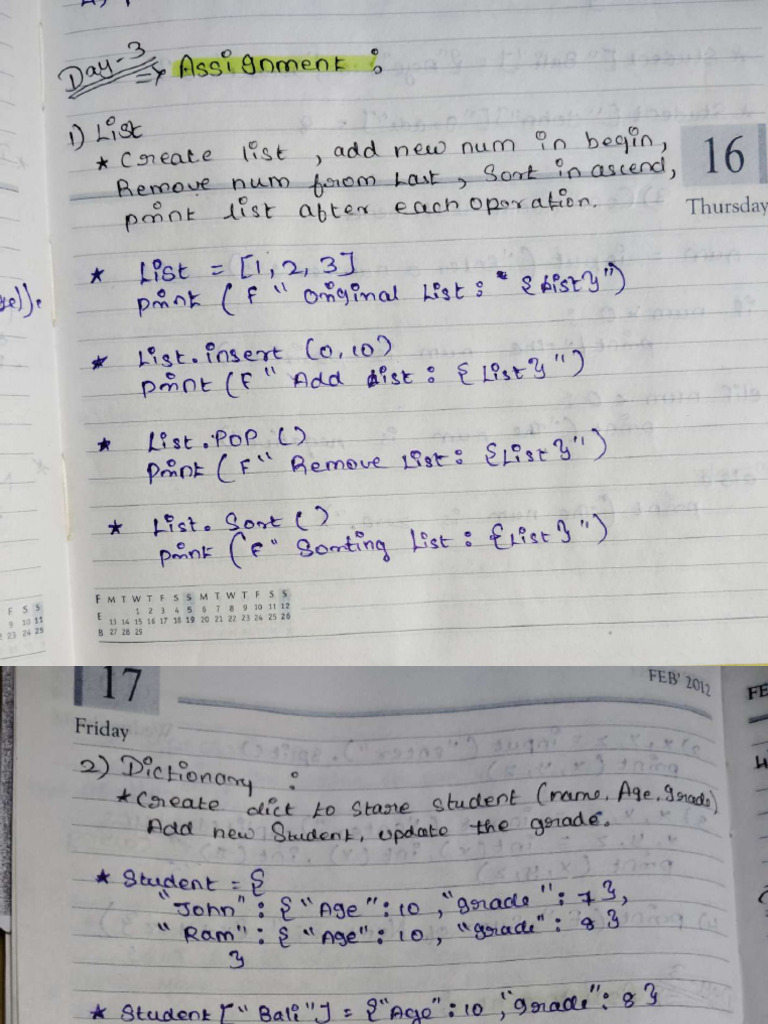 Day-3
=> Assignment :
1) List
* Create list , add new num in begin,
Remove num from Last , Sort in ascend,
print list after each oporation.
16
Thursday
* List = [1, 2, 3]
print (F " Original List : " {List}")
* List.insert (0, 10)
print (F " Add List : { List} ")
* List.POP ()
print (F " Remove List : {List}")
* List. Sort ()
print (F " Sorting List : {List} ")
F M T W T F S S M T W T F S S
E 1 2 3 4 5 6 7 8 9 10 11 12
13 14 15 16 17 18 19 20 21 22 23 24 25 26
B 27 28 29
F S S
9 10 11
23 24 25
17
Friday
FEB' 2012
FE
2) Dictionary :
* Create dict to stare student (name, Age, grade)
Add new Student, update the grade.
* Student = {
"John" : { "Age" : 10 , "grade" : 7 },
"Ram" : { "Age" : 10 , "grade" : 8 }
}
* Student [" Bali"] = {"Age" : 10 , "grade" : 8 }